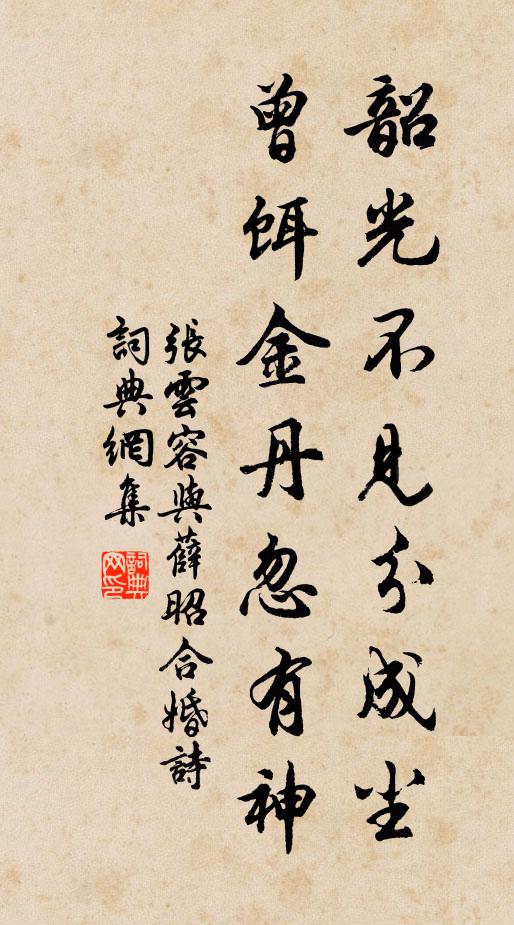 韶光不見分成尘
曾餌金丹忽有神
張雲容與薛昭合婚詩
詞典網集
詞典网印